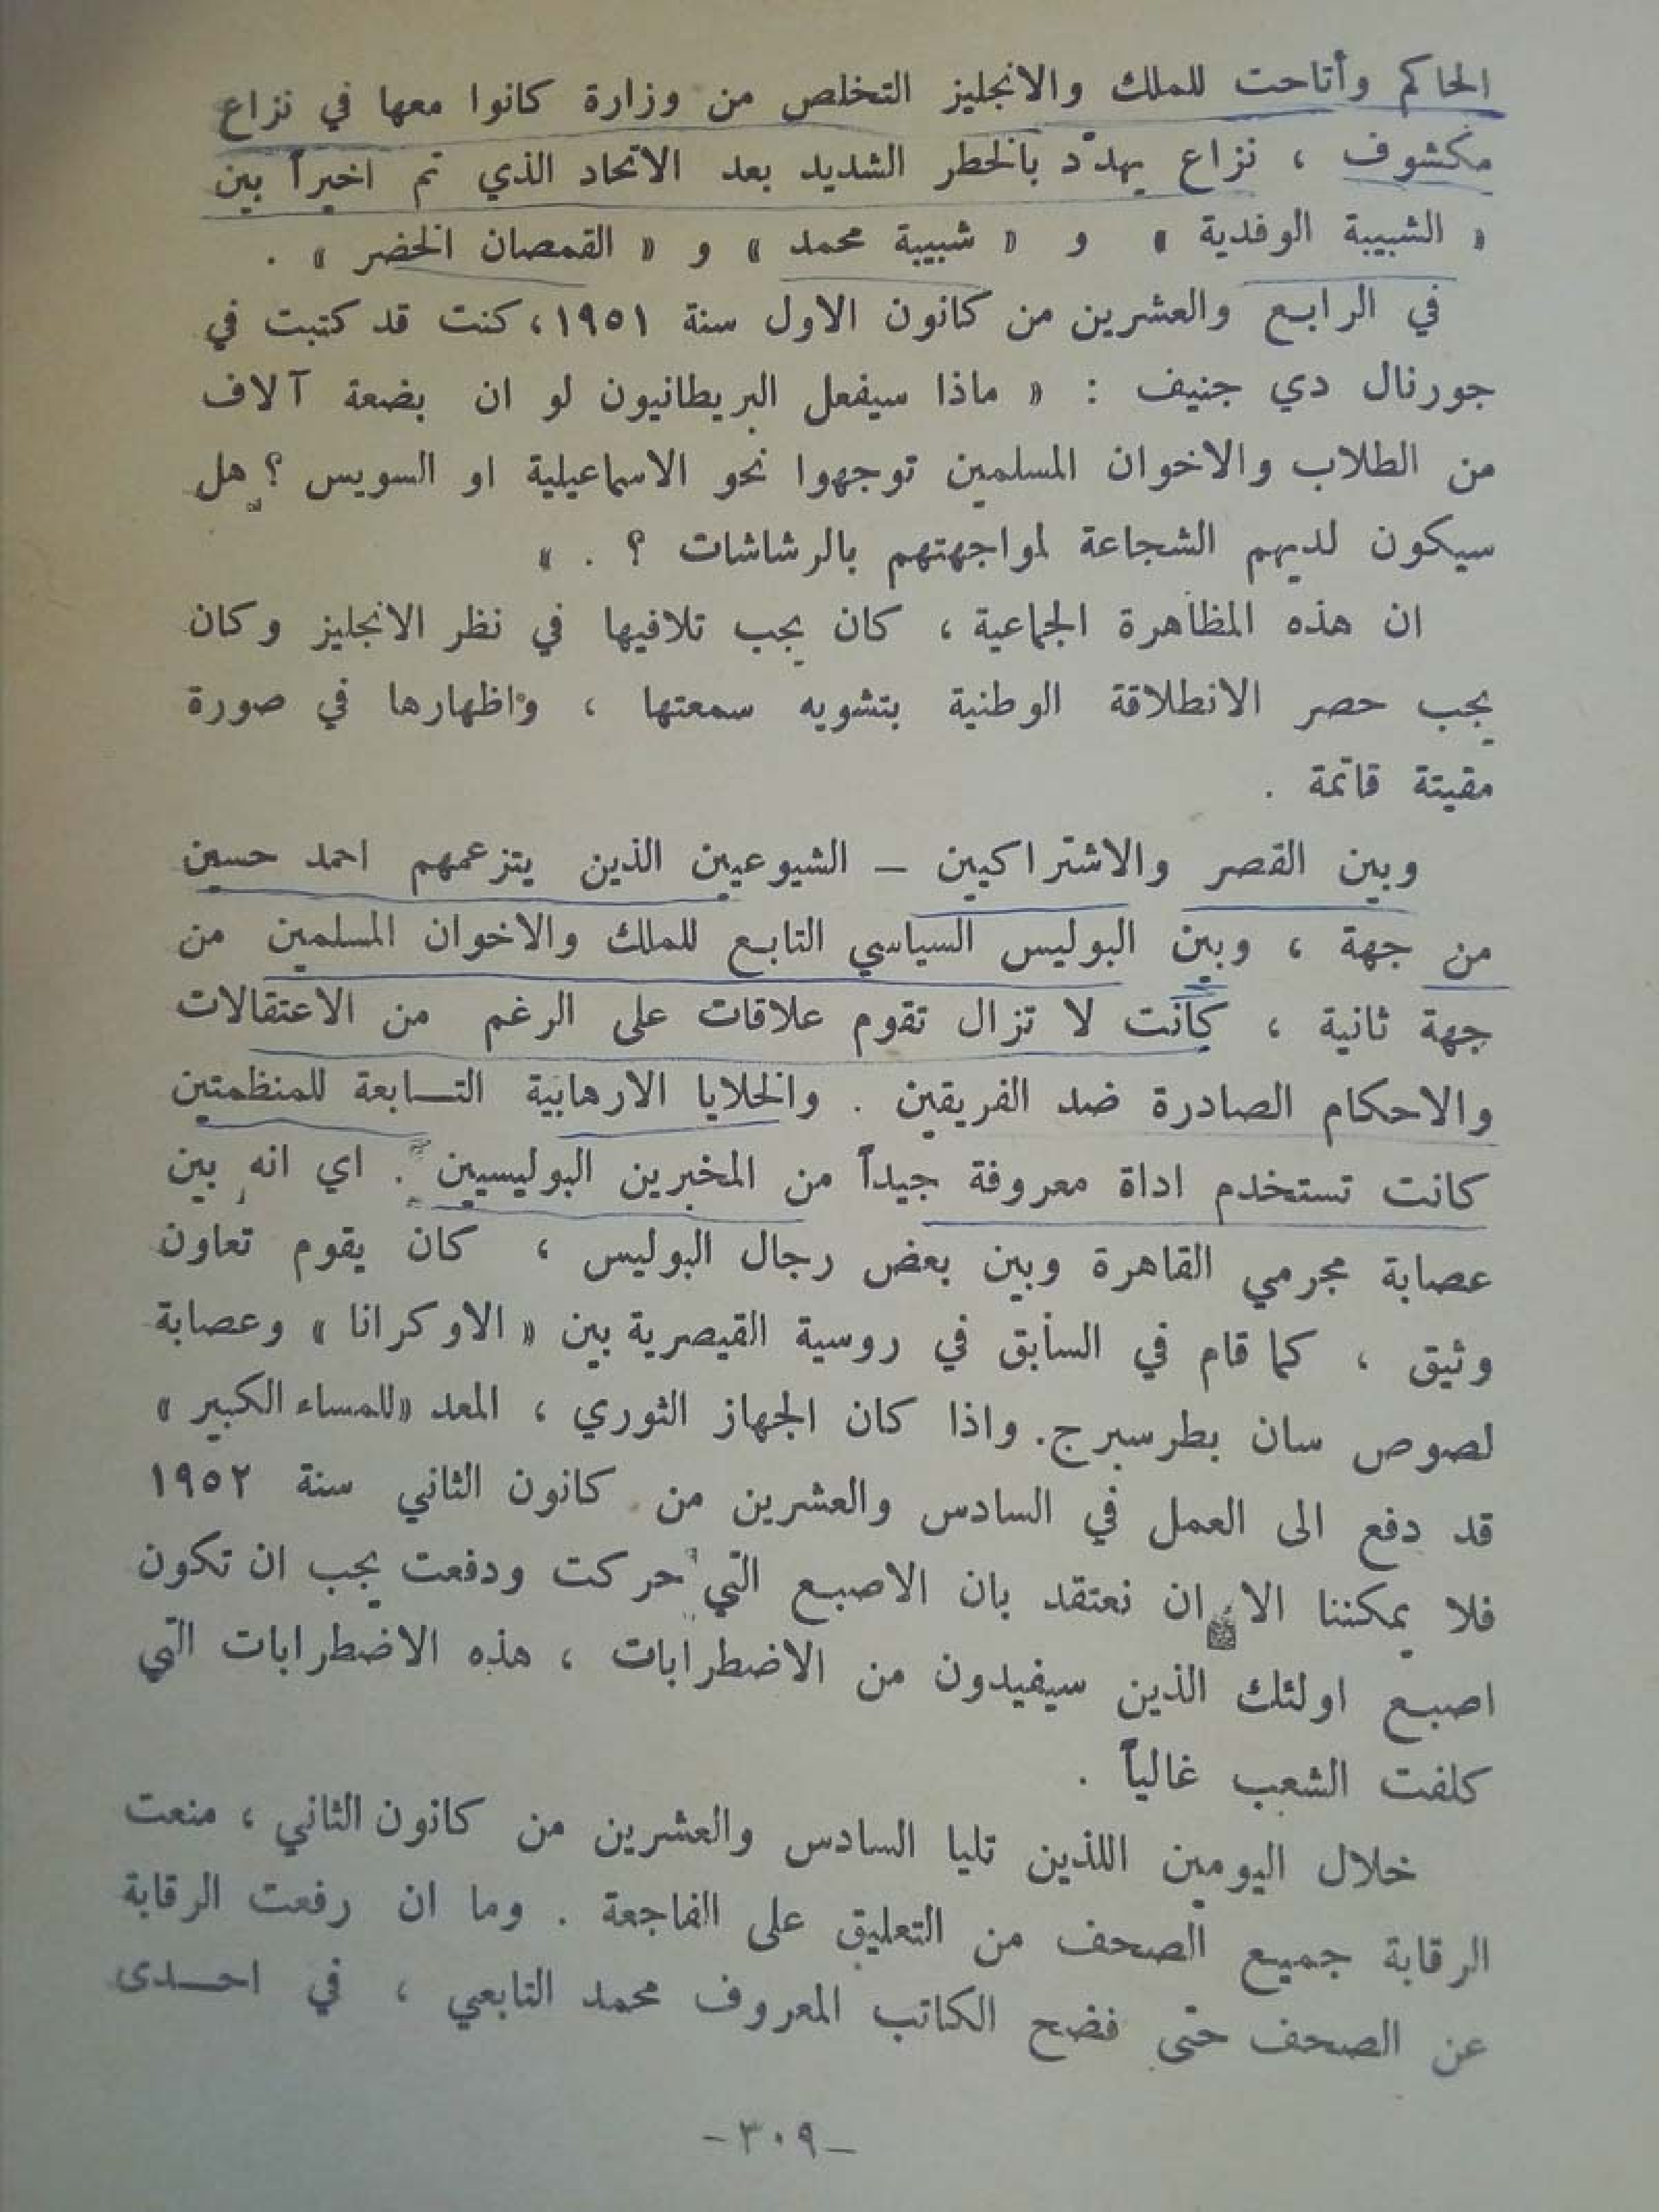 الحاكم وأتاحت للملك والانجليز التخلص من وزارة كانوا معها في نزاع
مكشوف ، نزاع يهدّد بالخطر الشديد بعد الاتحاد الذي تم اخيراً بين
« الشبيبة الوفدية » و « شبيبة محمد » و « القمصان الخضر » .
في الرابع والعشرين من كانون الاول سنة ١٩٥١، كنت قد كتبت في
جورنال دي جنيف : « ماذا سيفعل البريطانيون لو ان بضعة آلاف
من الطلاب والاخوان المسلمين توجهوا نحو الاسماعيلية او السويس ؟ هل
سيكون لديهم الشجاعة لمواجهتهم بالرشاشات ؟ . »
ان هذه المظاهرة الجماعية ، كان يجب تلافيها في نظر الانجليز وكان
يجب حصر الانطلاقة الوطنية بتشويه سمعتها ، واظهارها في صورة
مقيتة قاتمة .
وبين القصر والاشتراكيين – الشيوعيين الذين يتزعمهم احمد حسين
من جهة ، وبين البوليس السياسي التابع للملك والاخوان المسلمين من
جهة ثانية ، كانت لا تزال تقوم علاقات على الرغم من الاعتقالات
والاحكام الصادرة ضد الفريقين . والخلايا الارهابية التـابعة للمنظمتين
كانت تستخدم اداة معروفة جيداً من المخبرين البوليسيين . اي انه بين
عصابة مجرمي القاهرة وبين بعض رجال البوليس ، كان يقوم تعاون
وثيق ، كما قام في السابق في روسية القيصرية بين « الاوكرانا » وعصابة
لصوص سان بطرسبرج. واذا كان الجهاز الثوري ، المعد «للمساء الكبير »
قد دفع الى العمل في السادس والعشرين من كانون الثاني سنة ١٩٥٢
فلا يمكننا الا ان نعتقد بان الاصبع التي حركت ودفعت يجب ان تكون
اصبع اولئك الذين سيفيدون من الاضطرابات ، هذه الاضطرابات التي
كلفت الشعب غالياً .
خلال اليومين اللذين تليا السادس والعشرين من كانون الثاني ، منعت
الرقابة جميع الصحف من التعليق على الفاجعة . وما ان رفعت الرقابة
عن الصحف حتى فضح الكاتب المعروف محمد التابعي ، في احـدى
–٣٠٩–